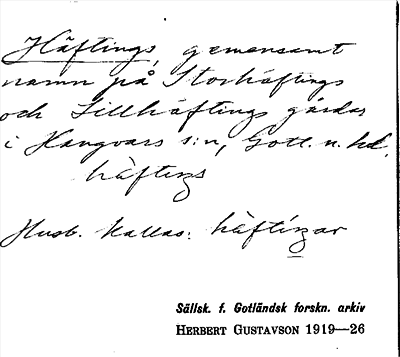 Häftings, gemensamt
namn på Storhäftings
och Lillhäftings gårdar
i Hangvars s:n, Gotl. n. hd.
häftiŋs
Husb. kallas: häftíŋar
Sällsk. f. Gotländsk forskn. arkiv
HERBERT GUSTAVSON 1919—26